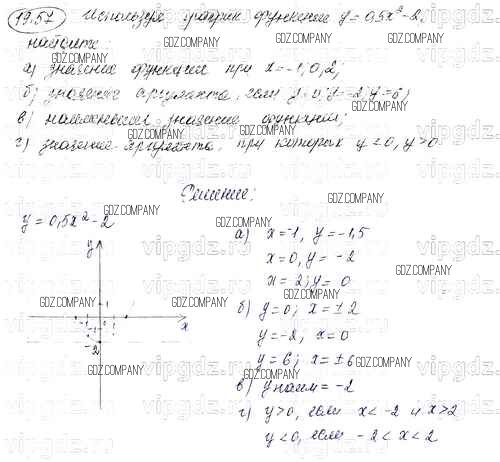 19.57 Используя график функции y = 0,5x² - 2,
найдите
а) значение функции при x = -1; 0; 2;
б) значение аргумента, если y = 0; y = -2; y = 6;
в) наименьшее значение функции;
г) значение аргумента, при которых y < 0, y > 0.
Решение:
y = 0,5x² - 2
y
x
1
-1
1
-2
а) x = -1, y = -1,5
x = 0, y = -2
x = 2; y = 0
б) y = 0; x = ±2
y = -2, x = 0
y = 6; x = ±6
в) y наим = -2
г) y > 0, если x < -2 и x > 2
y < 0, если -2 < x < 2
GDZ.COMPANY
vipgdz.ru